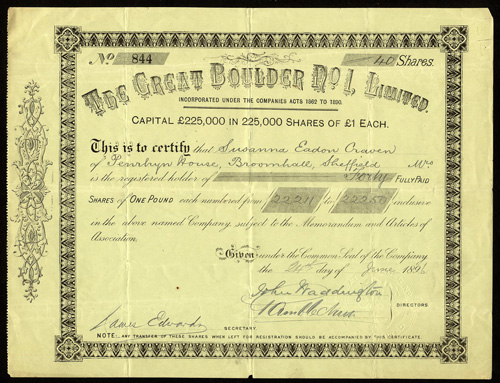 No. 844 40 Shares.
The Great Boulder No. 1, Limited.
INCORPORATED UNDER THE COMPANIES ACTS 1862 TO 1890.
CAPITAL £225,000 IN 225,000 SHARES OF £1 EACH.
This is to certify that Susanna Eadon Craven
of Penrhyn House, Broomhall, Sheffield
is the registered holder of Forty FULLY PAID
SHARES OF ONE POUND each numbered from 22211 to 22250 inclusive
in the above named Company, subject to the Memorandum and Articles of
Association.
Given under the Common Seal of the Company
the 24th day of June 1896
John Waddington
DIRECTORS
James Edwards SECRETARY
NOTE: ANY TRANSFER OF THESE SHARES WHEN LEFT FOR REGISTRATION SHOULD BE ACCOMPANIED BY THIS CERTIFICATE.